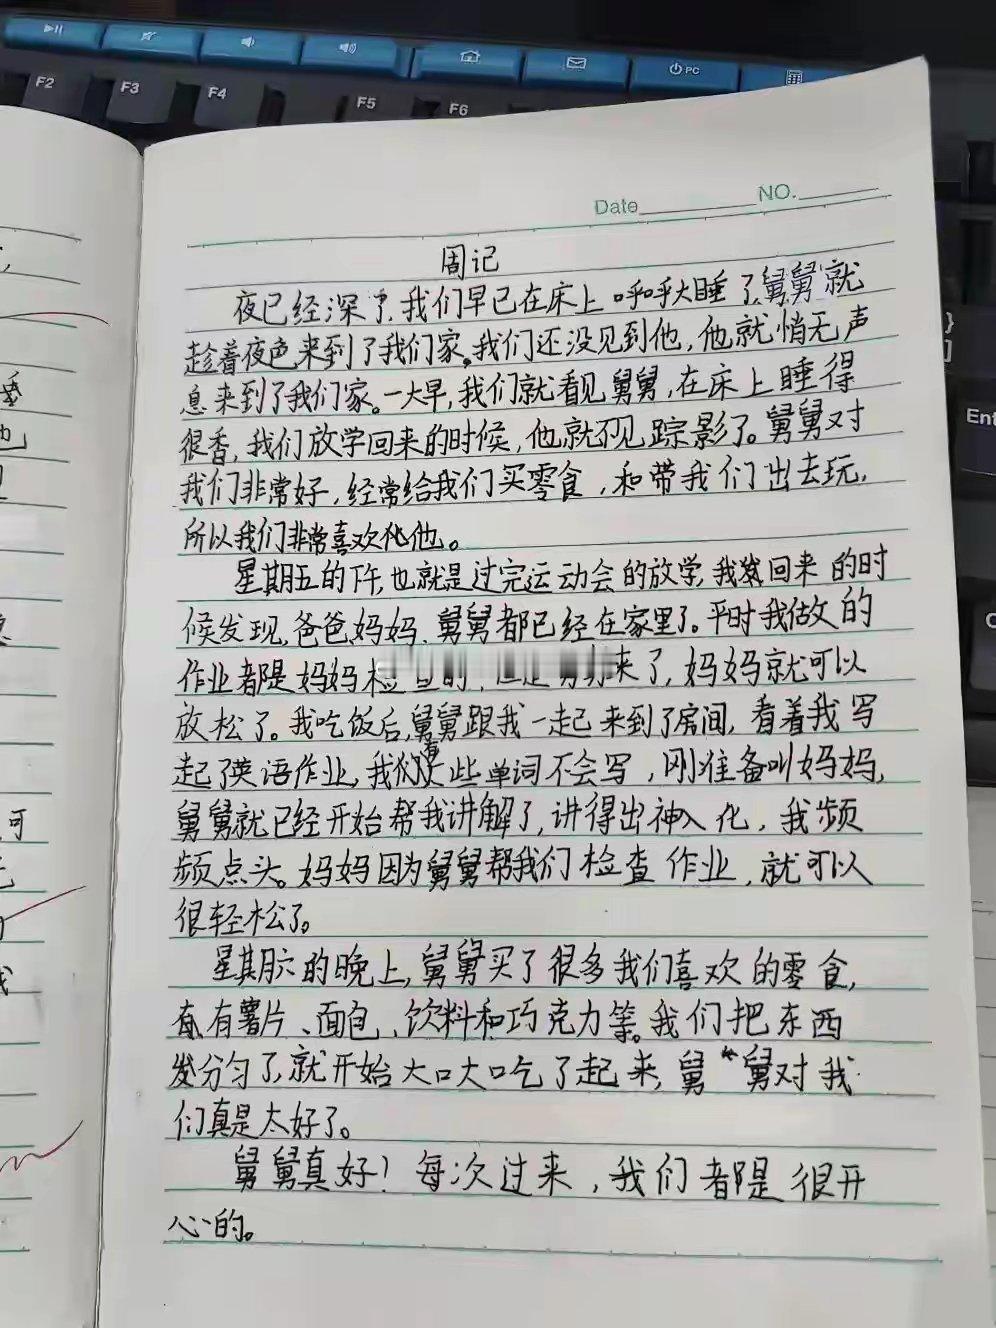 F2 F3 F4 F5 F6
PC
Date NO.
周记
夜已经深了,我们早已在床上呼呼大睡了,舅舅就
趁着夜色来到了我们家。我们还没见到他,他就悄无声
息来到了我们家。一大早,我们就看见舅舅,在床上睡得
很香,我们放学回来的时候,他就不见踪影了。舅舅对
我们非常好,经常给我们买零食,和带我们出去玩,
所以我们非常喜欢他。
星期五的下午,也就是过完运动会的放学,我回来的时
候发现,爸爸、妈妈、舅舅都已经在家里了。平时我做文的
作业都是妈妈检查的,来了,妈妈就可以
放松了。我吃饭后,舅舅跟我一起来到了房间,看着我写
起了英语作业,我有些单词不会写,刚准备叫妈妈,
舅舅就已经开始帮我讲解了,讲得出神入化,我频
频点头。妈妈因为舅舅帮我们检查作业,就可以
很轻松了。
星期六的晚上,舅舅买了很多我们喜欢的零食,
有薯片、面包、饮料和巧克力等。我们把东西
分匀了,就开始大口大口吃了起来,舅舅对我
们真是太好了。
舅舅真好!每次过来,我们都是很开
心的。